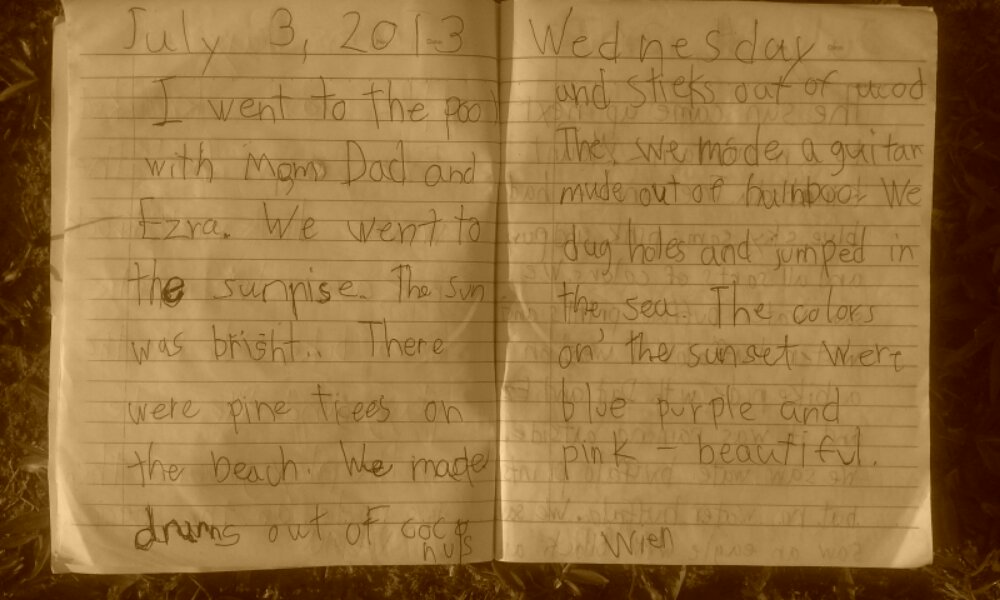 July 3, 2013
I went to the pool
with Mom Dad and
Ezra. We went to
the sunrise. The sun
was bright.. There
were pine trees on
the beach. We made
drums out of coco
nuts
Wednesday
and sticks out of wood
The. we made a guitar
made out of bamboo. We
dug holes and jumped in
the sea. The colors
on the sunset were
blue purple and
pink - beautiful.
Wren